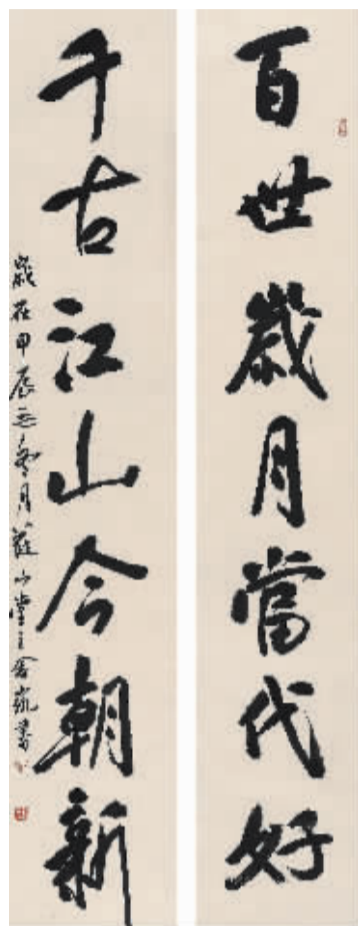 百世歲月當代好
千古江山今朝新
歲在甲辰冬月山堂主書